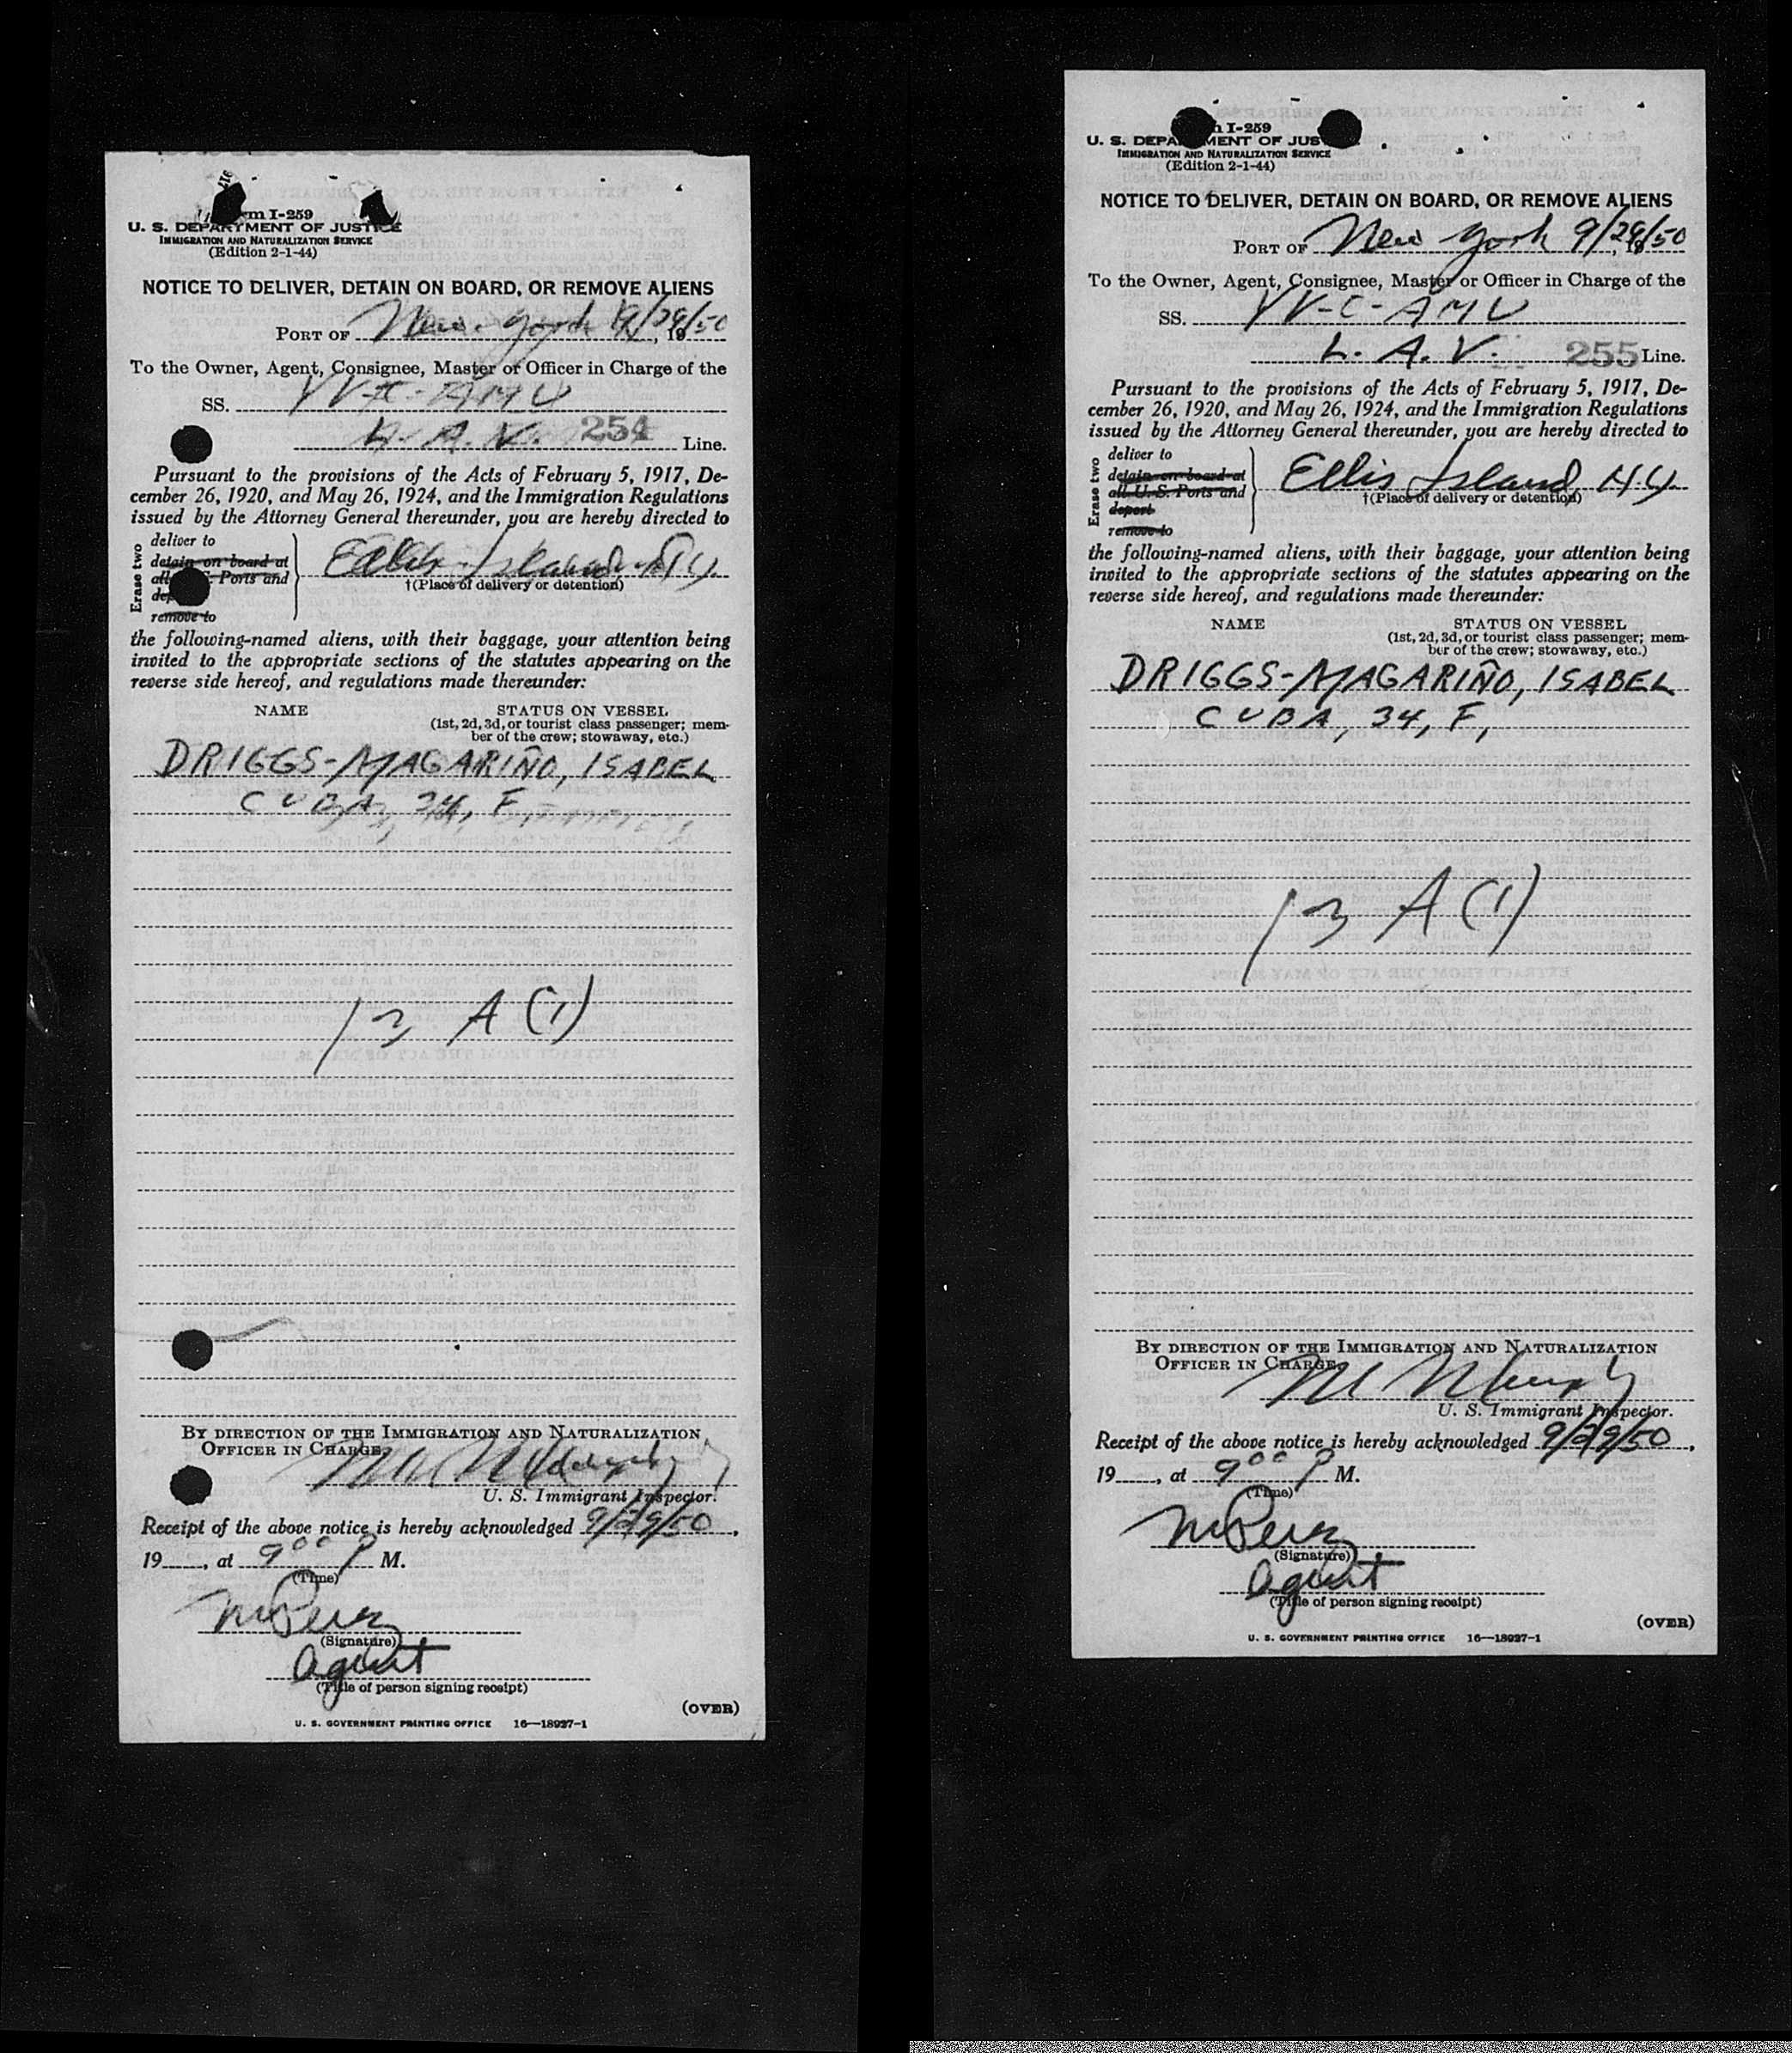 m I-259
U. S. DEPARTMENT OF JUSTICE
IMMIGRATION AND NATURALIZATION SERVICE
(Edition 2-1-44)
NOTICE TO DELIVER, DETAIN ON BOARD, OR REMOVE ALIENS
PORT OF New York 9/29/50, 19
To the Owner, Agent, Consignee, Master or Officer in Charge of the
SS. YV-C-AMU
L. A. V. 254 Line.
Pursuant to the provisions of the Acts of February 5, 1917, De-
cember 26, 1920, and May 26, 1924, and the Immigration Regulations
issued by the Attorney General thereunder, you are hereby directed to
Erase two
deliver to
detain on board at
all Ports and
remove to
Ellis Island NY
†(Place of delivery or detention)
the following-named aliens, with their baggage, your attention being
invited to the appropriate sections of the statutes appearing on the
reverse side hereof, and regulations made thereunder:
NAME STATUS ON VESSEL
(1st, 2d, 3d, or tourist class passenger; mem-
ber of the crew; stowaway, etc.)
DRIGGS-MAGARIÑO, ISABEL
CUBA, 34, F
13 A (1)
BY DIRECTION OF THE IMMIGRATION AND NATURALIZATION
OFFICER IN CHARGE,
U. S. Immigrant Inspector.
Receipt of the above notice is hereby acknowledged 9/29/50,
19, at 9 00 P M.
(Time)
(Signature)
Agent
(Title of person signing receipt)
(OVER)
U. S. GOVERNMENT PRINTING OFFICE 16—18927-1
I-259
U. S. DEPARTMENT OF JUS
IMMIGRATION AND NATURALIZATION SERVICE
(Edition 2-1-44)
NOTICE TO DELIVER, DETAIN ON BOARD, OR REMOVE ALIENS
PORT OF New York 9/29/50, 19
To the Owner, Agent, Consignee, Master or Officer in Charge of the
SS. YV-C-AMU
L. A. V. 255 Line.
Pursuant to the provisions of the Acts of February 5, 1917, De-
cember 26, 1920, and May 26, 1924, and the Immigration Regulations
issued by the Attorney General thereunder, you are hereby directed to
Erase two
deliver to
detain on board at
all U. S. Ports and
deport
remove to
Ellis Island, NY
†(Place of delivery or detention)
the following-named aliens, with their baggage, your attention being
invited to the appropriate sections of the statutes appearing on the
reverse side hereof, and regulations made thereunder:
NAME STATUS ON VESSEL
(1st, 2d, 3d, or tourist class passenger; mem-
ber of the crew; stowaway, etc.)
DRIGGS-MAGARIÑO, ISABEL
CUBA, 34, F,
13 A (1)
BY DIRECTION OF THE IMMIGRATION AND NATURALIZATION
OFFICER IN CHARGE,
U. S. Immigrant Inspector.
Receipt of the above notice is hereby acknowledged 9/29/50,
19, at 9 00 P M.
(Time)
(Signature)
Agent
(Title of person signing receipt)
(OVER)
U. S. GOVERNMENT PRINTING OFFICE 16—18927-1